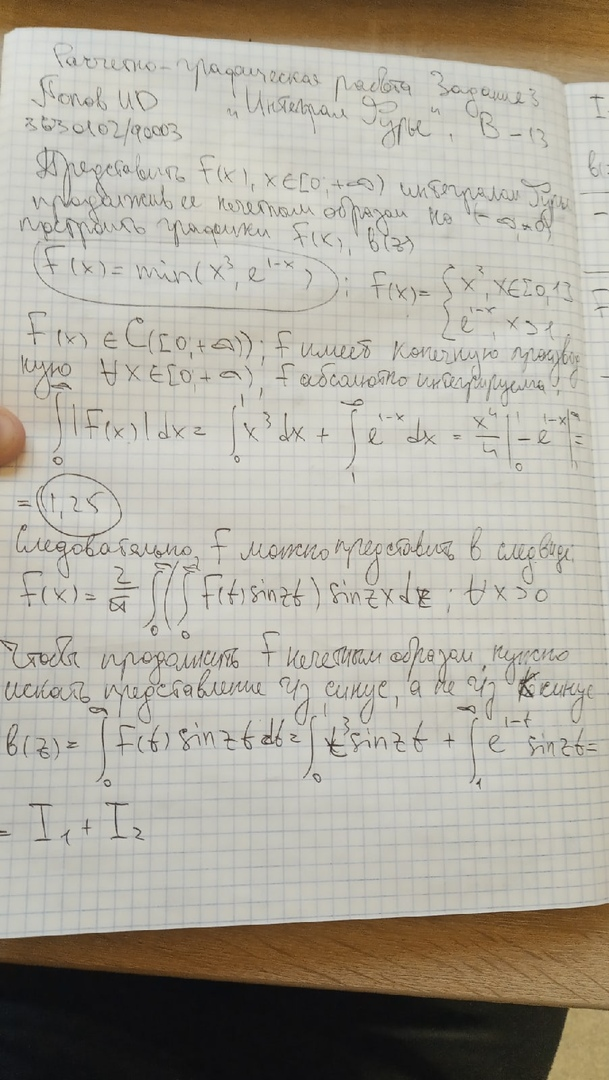 Расчетно-графическая работа Задание 3
Попов ИО "Интеграл Фурье", В-13
3630102/90003
Представить f(x), x∈[0,+∞) интегралом Фурье
продолжив ее нечетным образом на (-∞,0)
построить графики f(x), b(z)
f(x) = min(x³, e^{1-x}) ; f(x) = { x³, x∈[0,1]
{ e^{1-x}, x>1
f(x) ∈ C([0,+∞)); f имеет конечную производ
ную ∀x∈[0,+∞), f абсолютно интегрируема:
∫₀^∞ |f(x)|dx = ∫₀¹ x³dx + ∫₁^∞ e^{1-x}dx = x⁴/4 |₀¹ - e^{1-x}|₁^∞ =
= 1,25
Следовательно, f можно представить в след виде:
f(x) = 2/π ∫₀^∞ (∫₀^∞ f(t) sin zt) sin zx dz ; ∀x>0
Чтобы продолжить f нечетным образом, нужно
искать представление чз синус, а не чз косинус
b(z) = ∫₀^∞ f(t) sin zt dt = ∫₀¹ t³ sin zt + ∫₁^∞ e^{1-t} sin zt =
= I₁ + I₂
I
b(